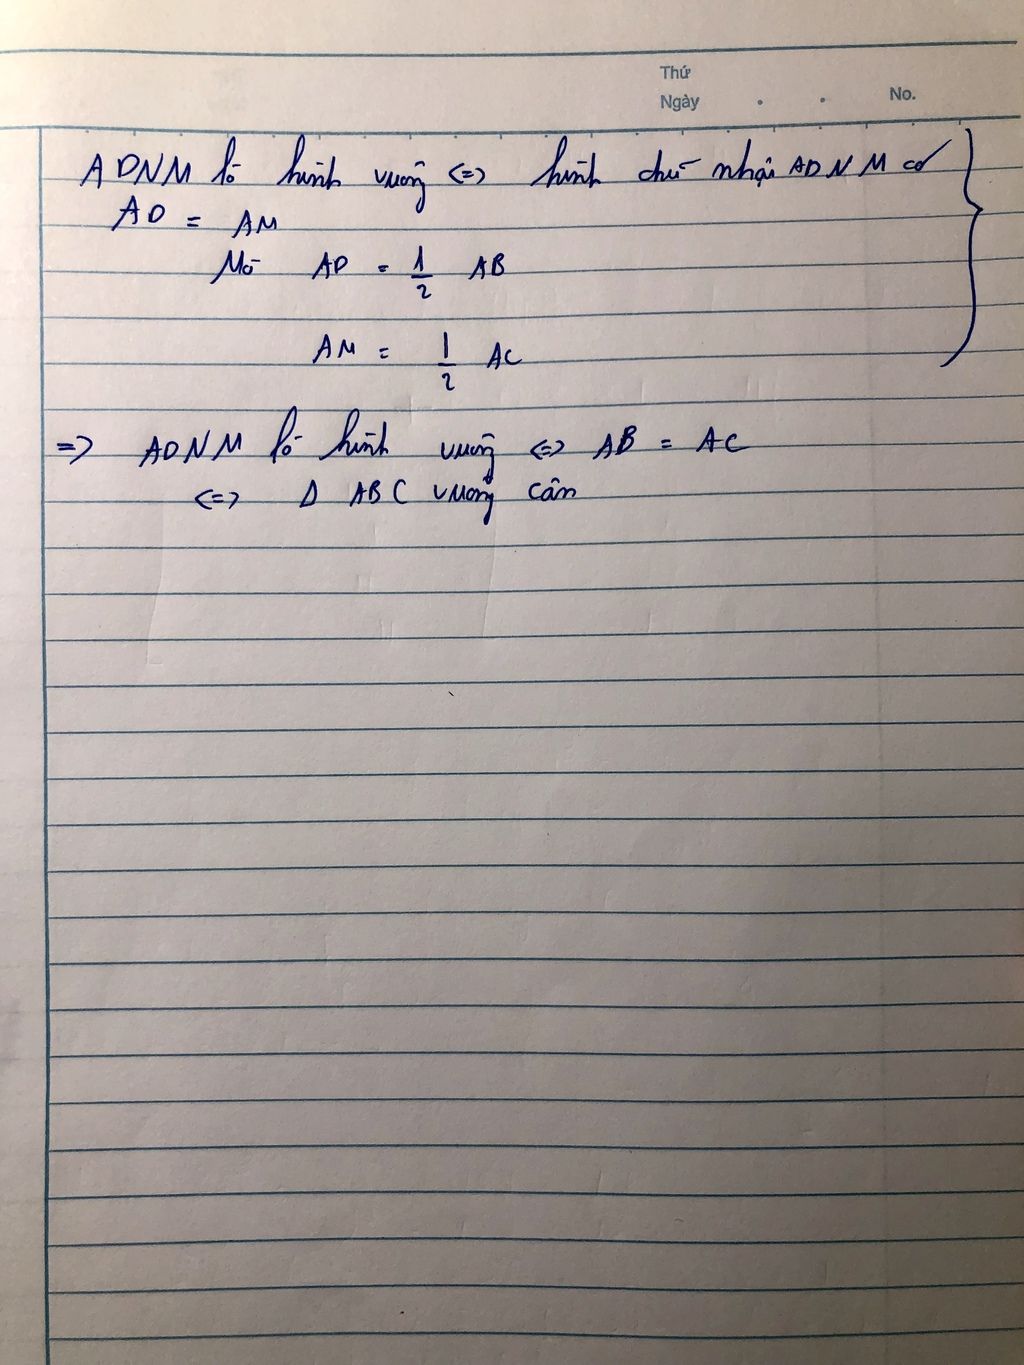 Thứ
Ngày . . No.
ADNM là hình vuông <=> hình chữ nhật ADNM có
AD = AM
Mà AD = 1/2 AB
AM = 1/2 AC
=> ADNM là hình vuông <=> AB = AC
<=> Δ ABC vuông cân